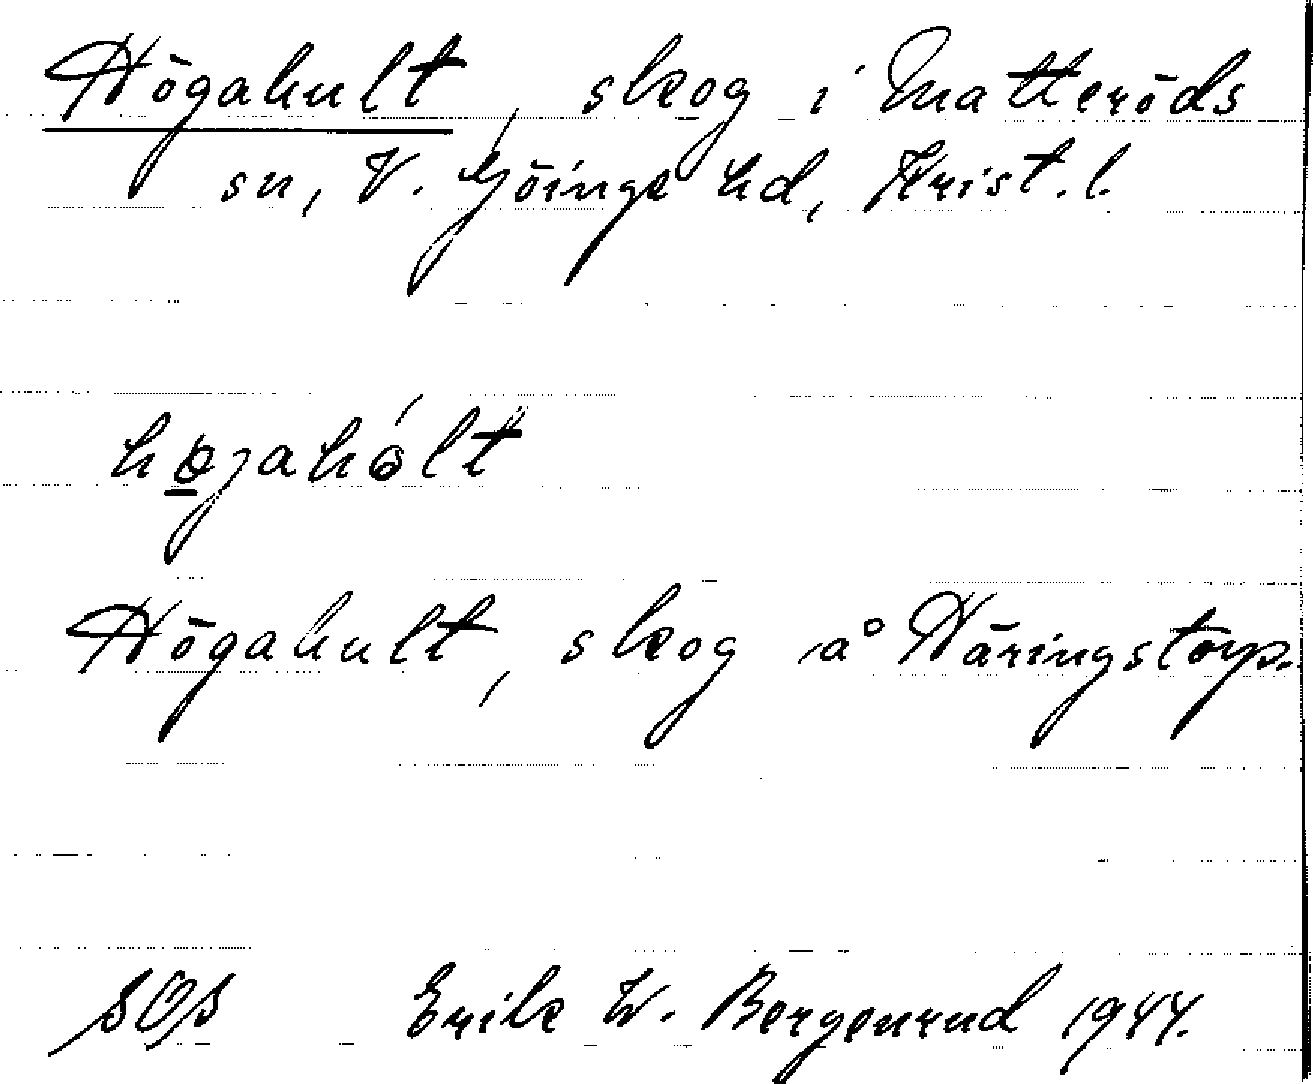 Högakult, skog i Matteröds
sn, V. Göinge hd, Krist. l.
højahólt
Högakult, skog å Häringstorp.
SOS Erik W. Bergenrud 1944.